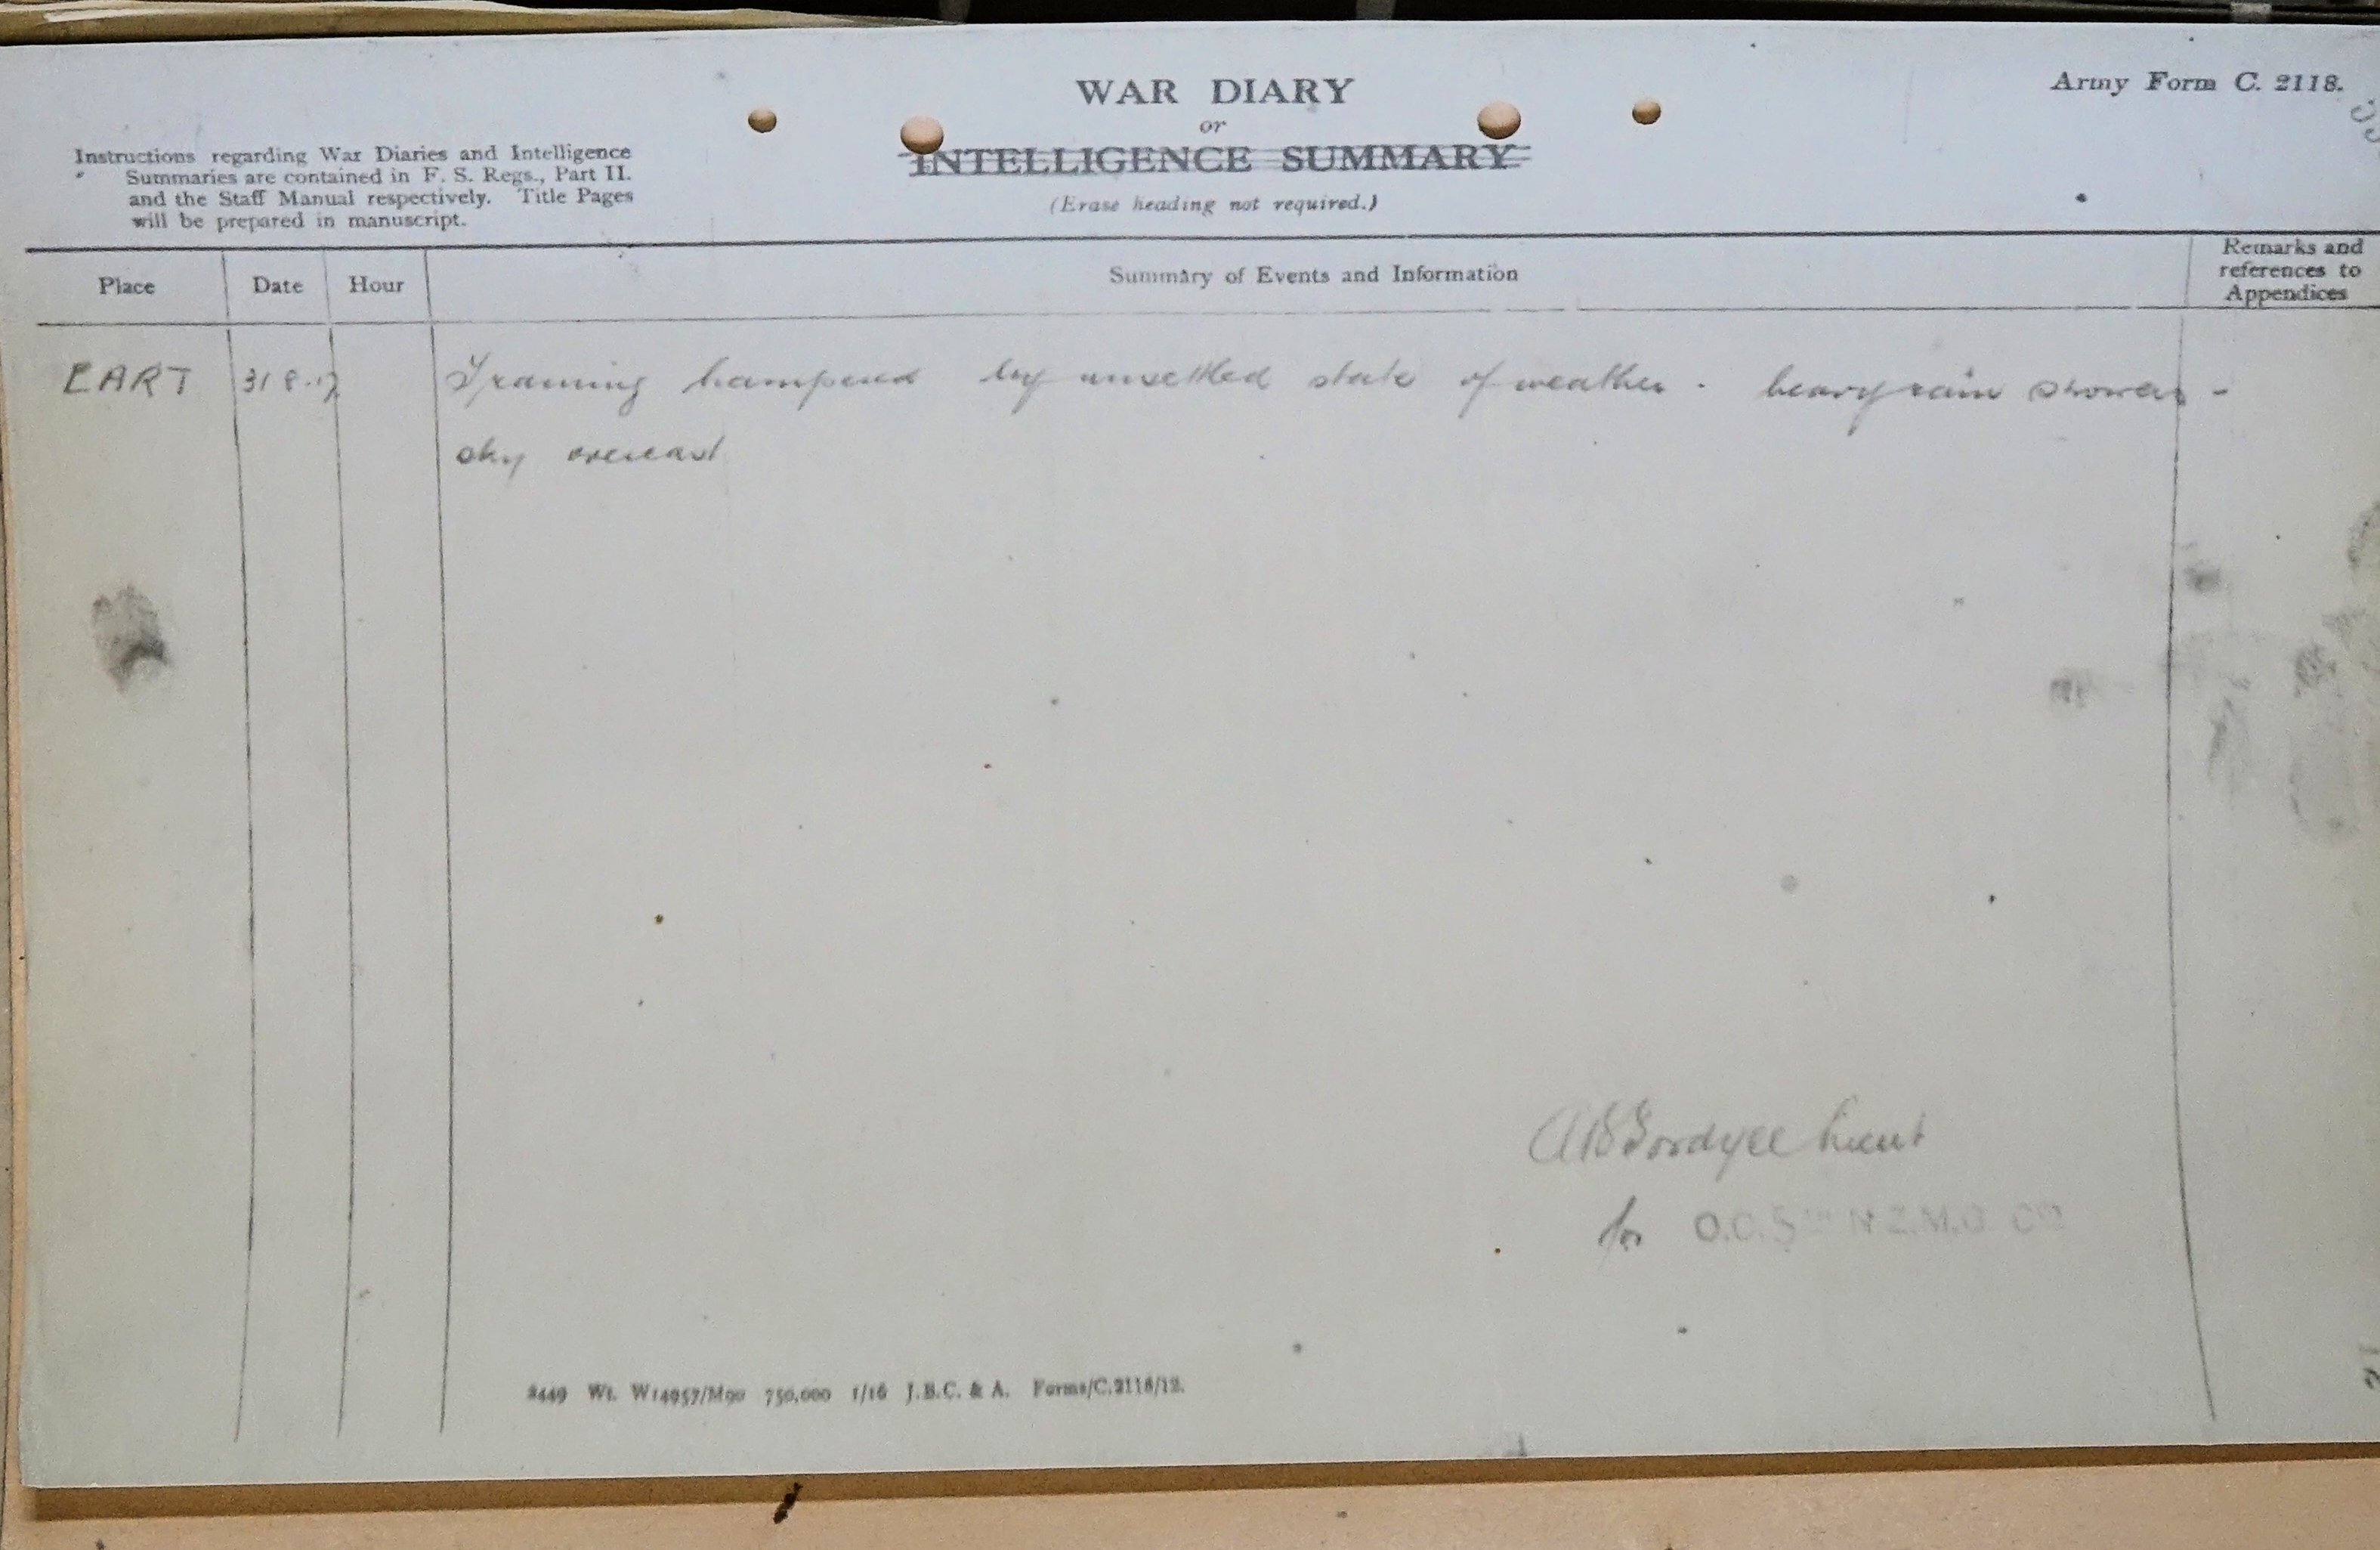 WAR DIARY
or
INTELLIGENCE SUMMARY
(Erase heading not required.)
Army Form C. 2118.
Instructions regarding War Diaries and Intelligence
Summaries are contained in F. S. Regs., Part II.
and the Staff Manual respectively. Title Pages
will be prepared in manuscript.
Place Date Hour Summary of Events and Information Remarks and
references to
Appendices
31.8.17 Training hampered by unsettled state of weather. heavy rain showers -
sky overcast
Lieut
for O.C. 5th N.Z.M.G. Co
Wt. W14957/M90 750,000 1/16 J.B.C. & A. Forms/C.2118/12.